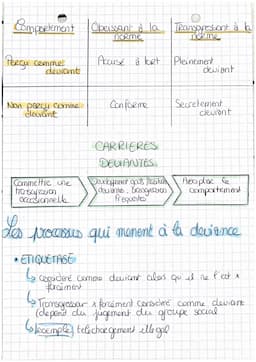 Comportement
Obéissant à la norme
Transgressant à la norme
Perçu comme déviant
Accusé à tort
Pleinement déviant
Non perçu comme déviant
Conforme
Secrètement déviant
CARRIÈRES
DEVIANTES
Commettre une transgression occasionnelle
Développement goûts
déviante, transgression fréquentes
le comportement
Les processus qui mènent à la déviance
• ETIQUETAGE
↳ considéré comme déviant alors qu'il ne l'est
forcément
↳ Transgresseur ≠ forcément considéré comme déviant
(dépend du jugement du groupe social
↳ exemple) téléchargement illégal